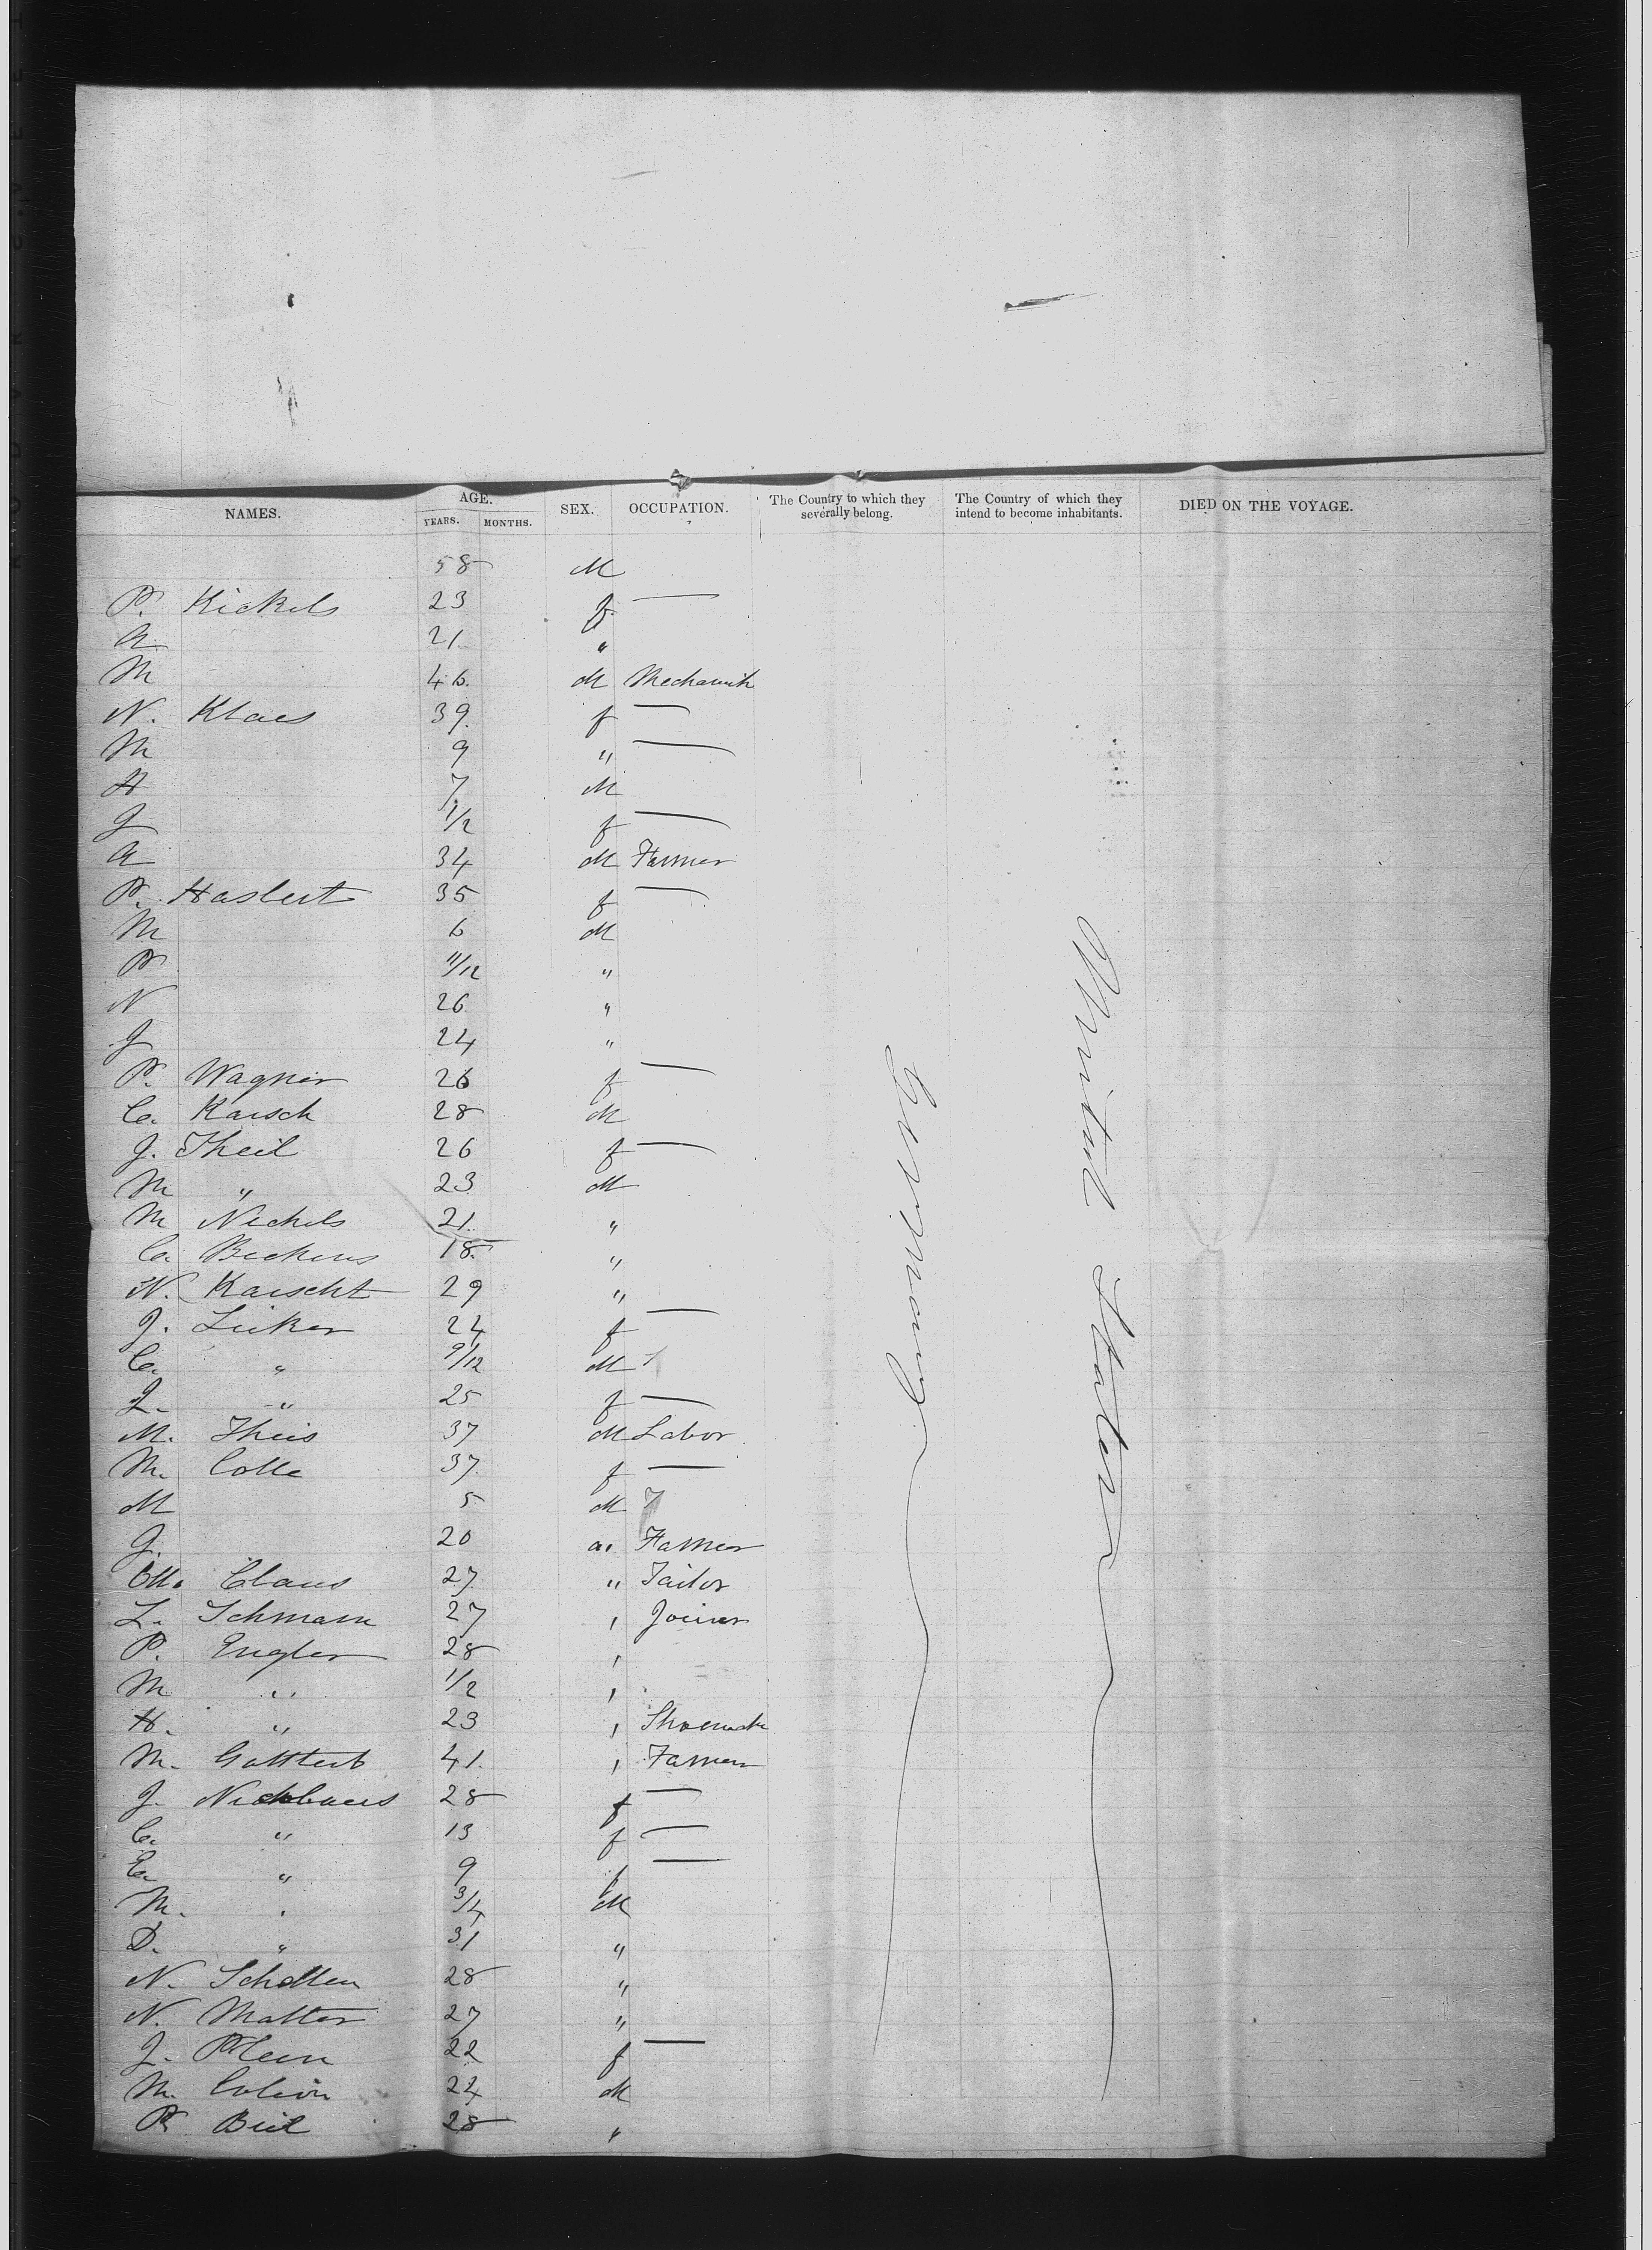 NAMES. AGE. YEARS. MONTHS. SEX. OCCUPATION. The Country to which they severally belong. The Country of which they intend to become inhabitants. DIED ON THE VOYAGE.
58 M
P. Kickels 23 f —
A 21 "
M 46. M Mechanik
N. Klaes 39. f —
M 9 " —
H 7 M
J 1/2 f —
A 34 M Farmer
P. Haslert 35 f —
M 6 M
P 11/12 "
N 26 "
J 24 "
P. Wagner 26 f —
C. Karsch 28 M
J. Theil 26 f —
M " 23 M
M Nickels 21. "
C. Beckens 18. "
N. Karscht 29 "
J. Licker 24 f —
C. " 9/12 M
L. " 25 f —
M. Theis 37 M Labor
M. Colle 37. f —
M 5 M
J. 20 " Farmer
Otto Claus 27 " Tailor
L. Schmann 27 " Joiner
P. Engler 28 "
M " 1/2 "
H. " 23 " Shoemak
M. Gottleb 41. " Farmer
J. 28 f —
C. " 13 f —
E. " 9 f —
M. " 3/4 M
D. " 31 "
N. Scholten 28 "
N. Matter 27 "
J. Plein 22 f —
M. 24 M
P. Biel 28 "
Germany
United States